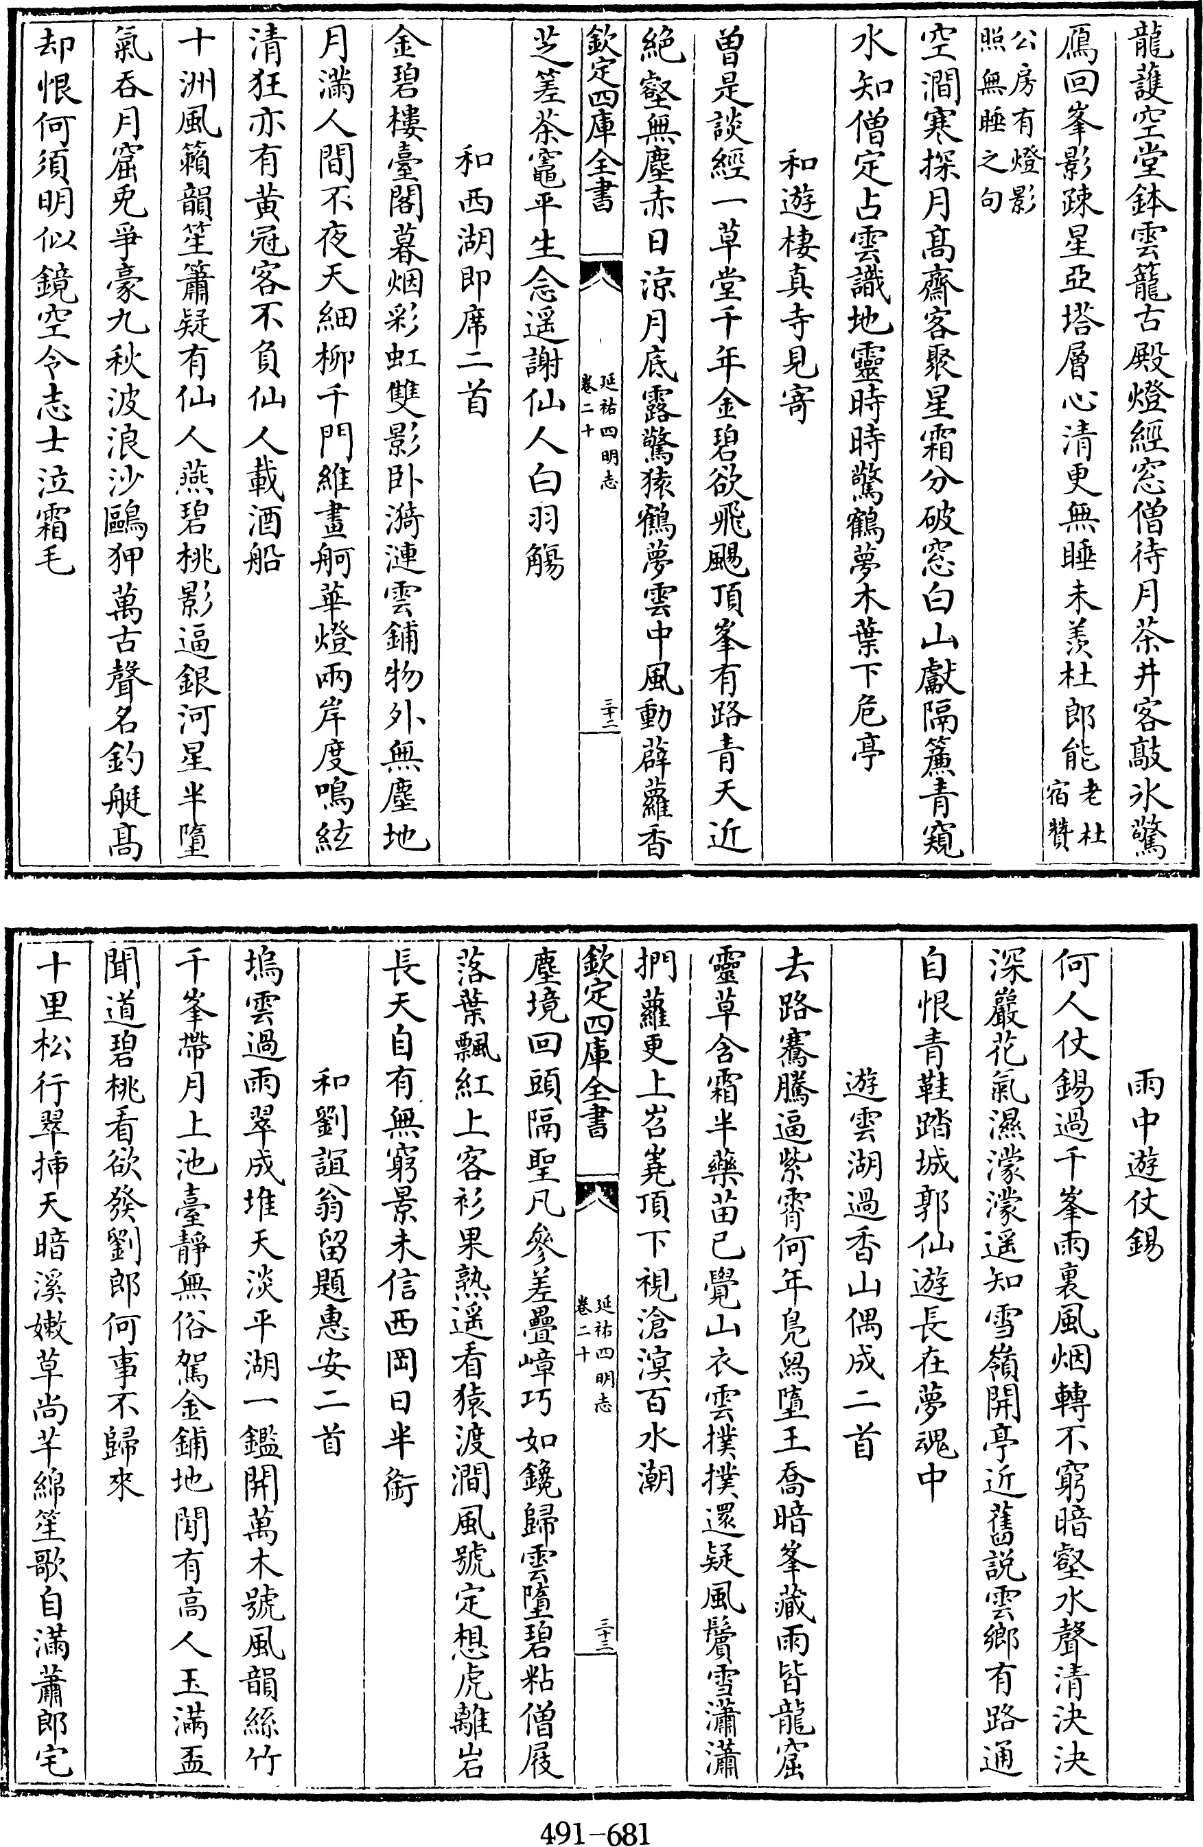 龍護空堂鉢雲籠古殿燈經窓僧待月茶井客敲氷驚
鴈回峯影踈星亞塔層心清更無睡未羨杜郎能老杜宿贊
公房有燈影照無睡之句
空澗寒探月髙齋客聚星霜分破窓白山獻隔簾青窺
水知僧定占雲識地靈時時驚鶴夢木葉下危亭
和遊棲真寺見寄
曽是談經一草堂千年金碧欲飛颺頂峯有路青天近
絶壑無塵赤日涼月底露驚猿鶴夢雲中風動薜蘿香
欽定四庫全書
延祐四明志
卷二十
三十二
芝差茶竈平生念遥謝仙人白羽觴
和西湖即席二首
金碧樓臺閣暮烟彩虹雙影卧漪漣雲鋪物外無塵地
月滿人間不夜天細柳千門維畫舸華燈兩岸度鳴絃
清狂亦有黄冠客不負仙人載酒船
十洲風籟韻笙簫疑有仙人燕碧桃影逼銀河星半墮
氣吞月窟兎爭豪九秋波浪沙鷗狎萬古聲名釣艇髙
却恨何須明似鏡空令志士泣霜毛
雨中遊仗錫
何人仗錫過千峯雨裏風烟轉不窮暗壑水聲清決決
深巖花氣濕濛濛遥知雪嶺開亭近舊説雲鄉有路通
自恨青鞋踏城郭仙遊長在夢魂中
遊雲湖過香山偶成二首
去路騫騰逼紫霄何年鳬舄墮王喬暗峯藏雨皆龍窟
靈草含霜半藥苗已覺山衣雲撲撲還疑風鬢雪瀟瀟
捫蘿更上岧嶤頂下視滄溟百水潮
欽定四庫全書
延祐四明志
卷二十
三十三
塵境回頭隔聖凡參差疊嶂巧如鑱歸雲墮碧粘僧屐
落葉飄紅上客衫果熟遥看猿渡澗風號定想虎離岩
長天自有無窮景未信西岡日半銜
和劉誼翁留題惠安二首
塢雲過雨翠成堆天淡平湖一鑑開萬木號風韻絲竹
千峯帶月上池臺靜無俗駕金鋪地閒有高人玉滿盃
聞道碧桃看欲發劉郎何事不歸來
十里松行翠揷天暗溪嫩草尚芊綿笙歌自滿蕭郎宅
491-681